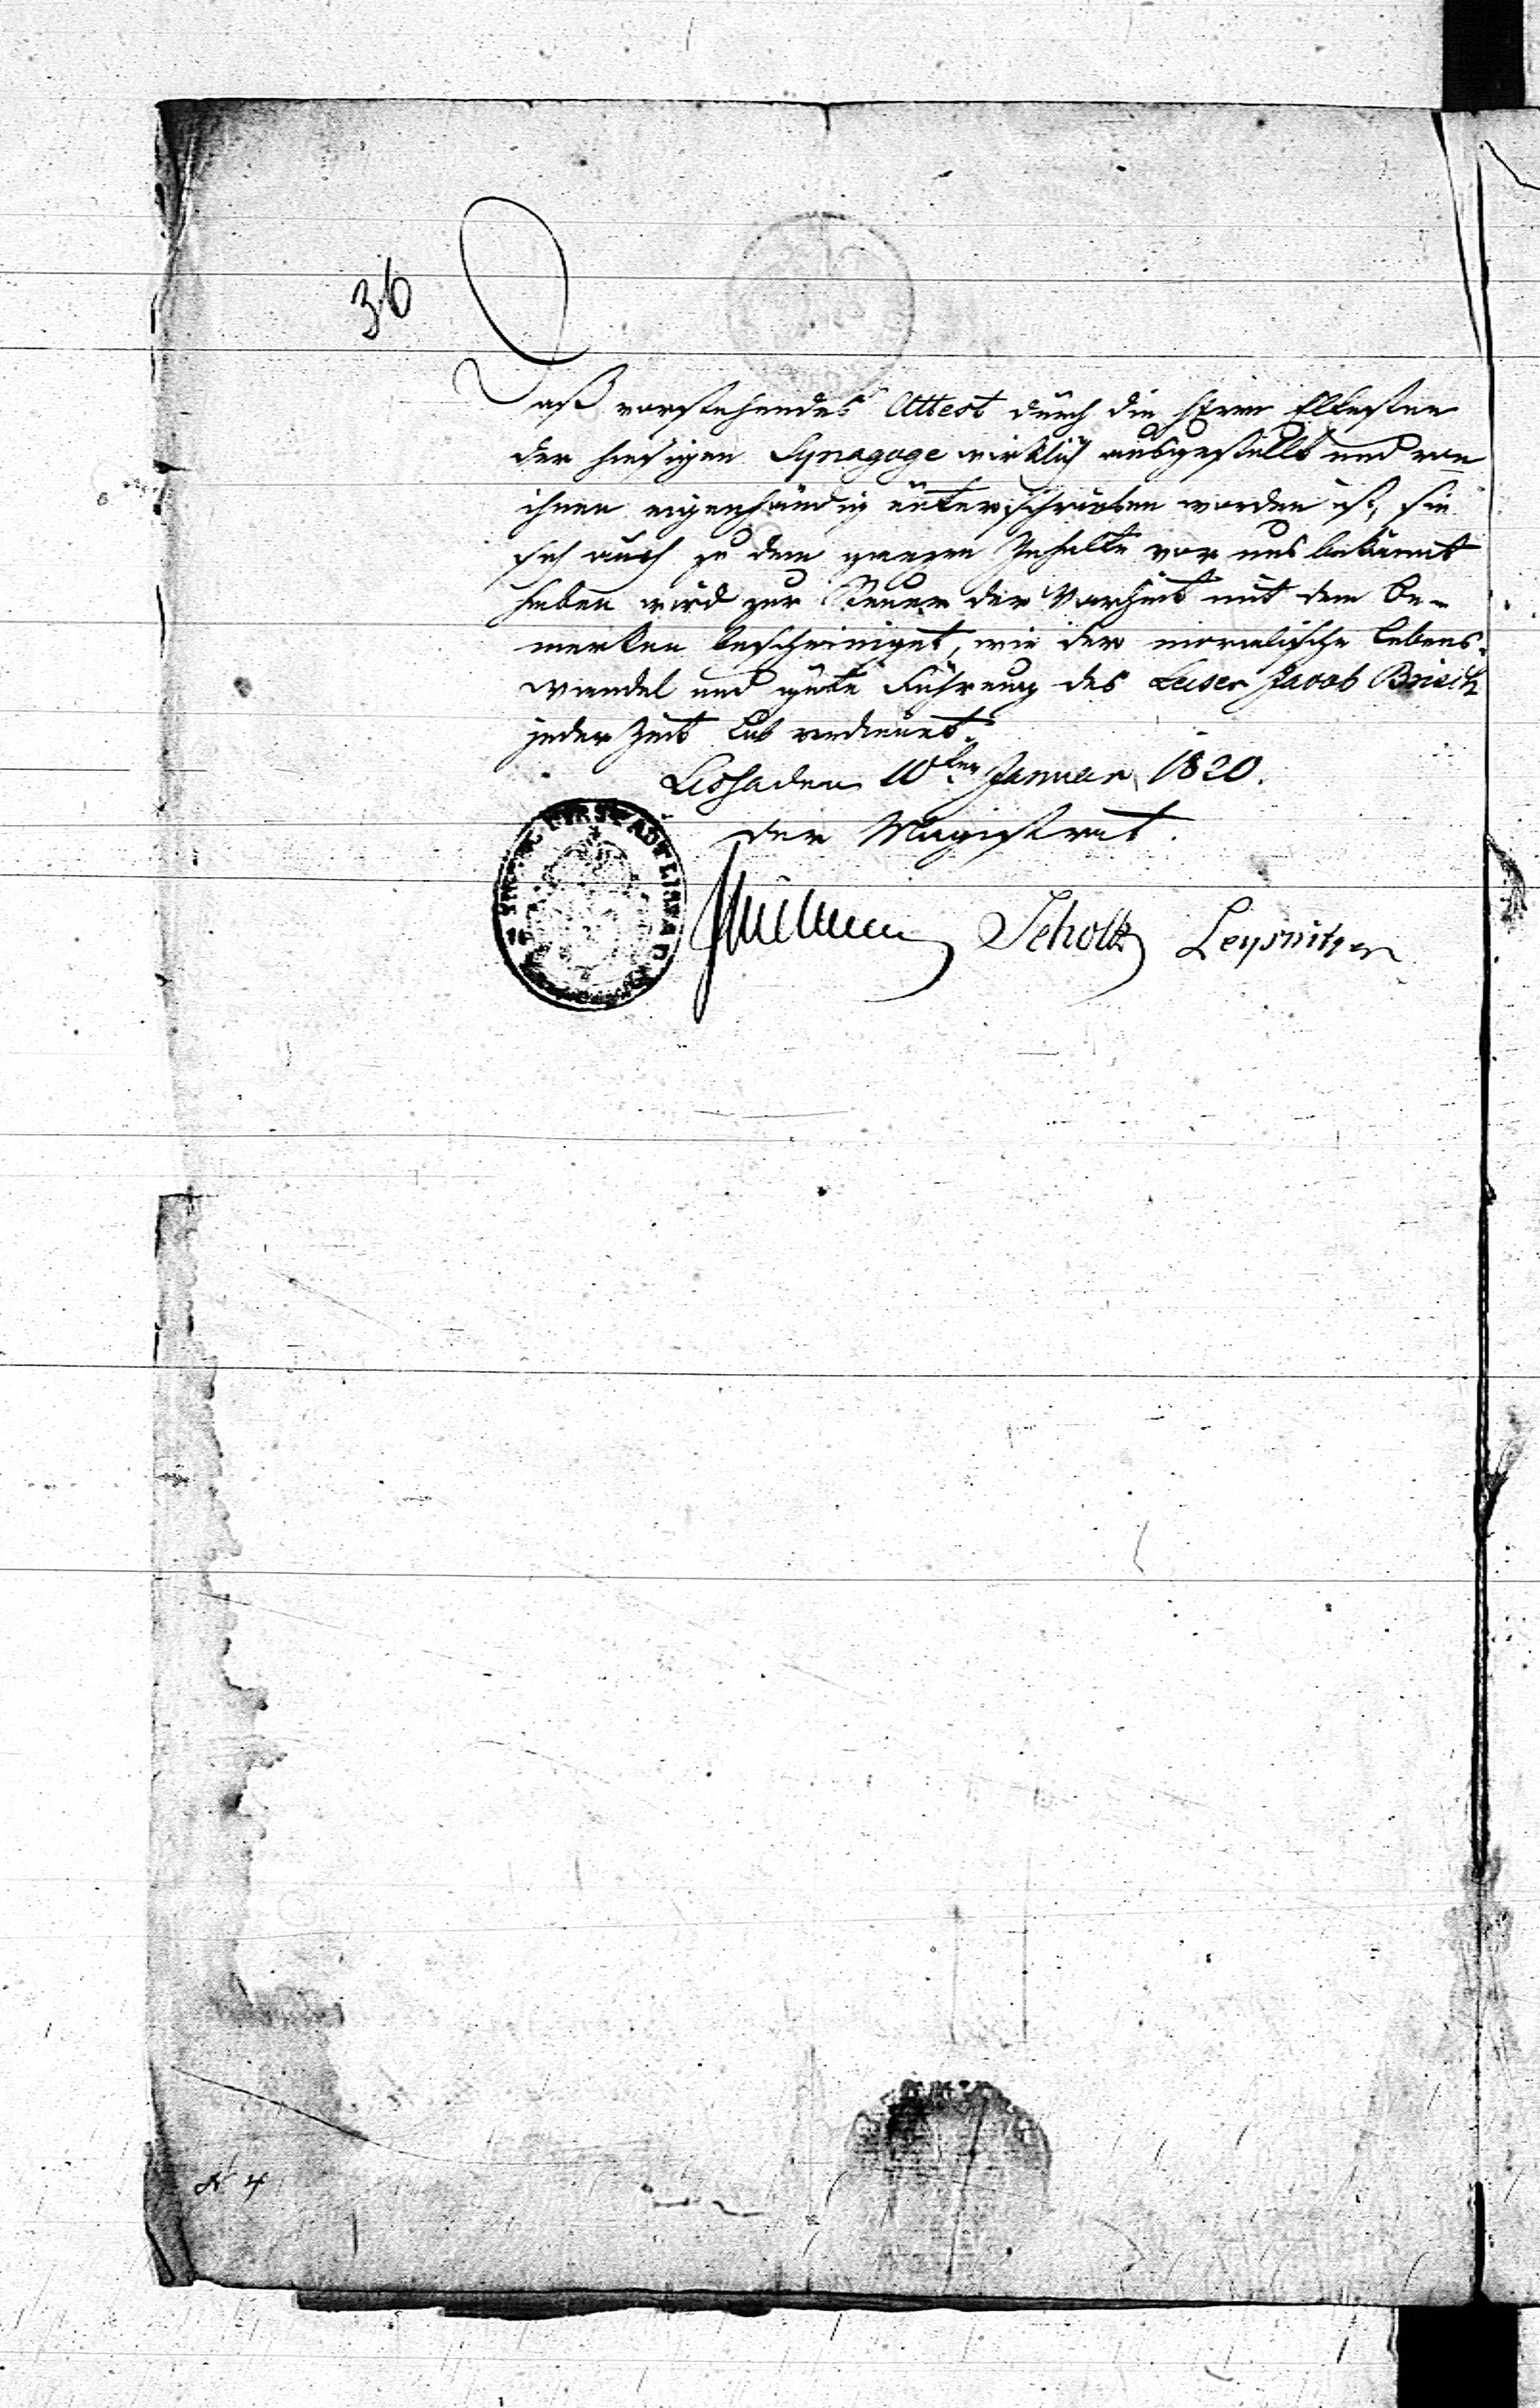 36
Daß vorstehendes Attest durch die Herrn Eltesten
der hiesigen Synagoge wirklich ausgestellt und von
ihnen eigenhändig unterschrieben worden ist, sie
sich auch zu dem ganzen Inhalte vor uns bekannt
haben wird zur Steuer der Warheit mit dem Be-
merken bescheiniget, wie der moralische Lebens-
wandel und gute Führung des Leiser Jacob
jeder Zeit Lob verdienet.
10ten Januar 1820.
Der Magistrat.
Scholtz
N 4